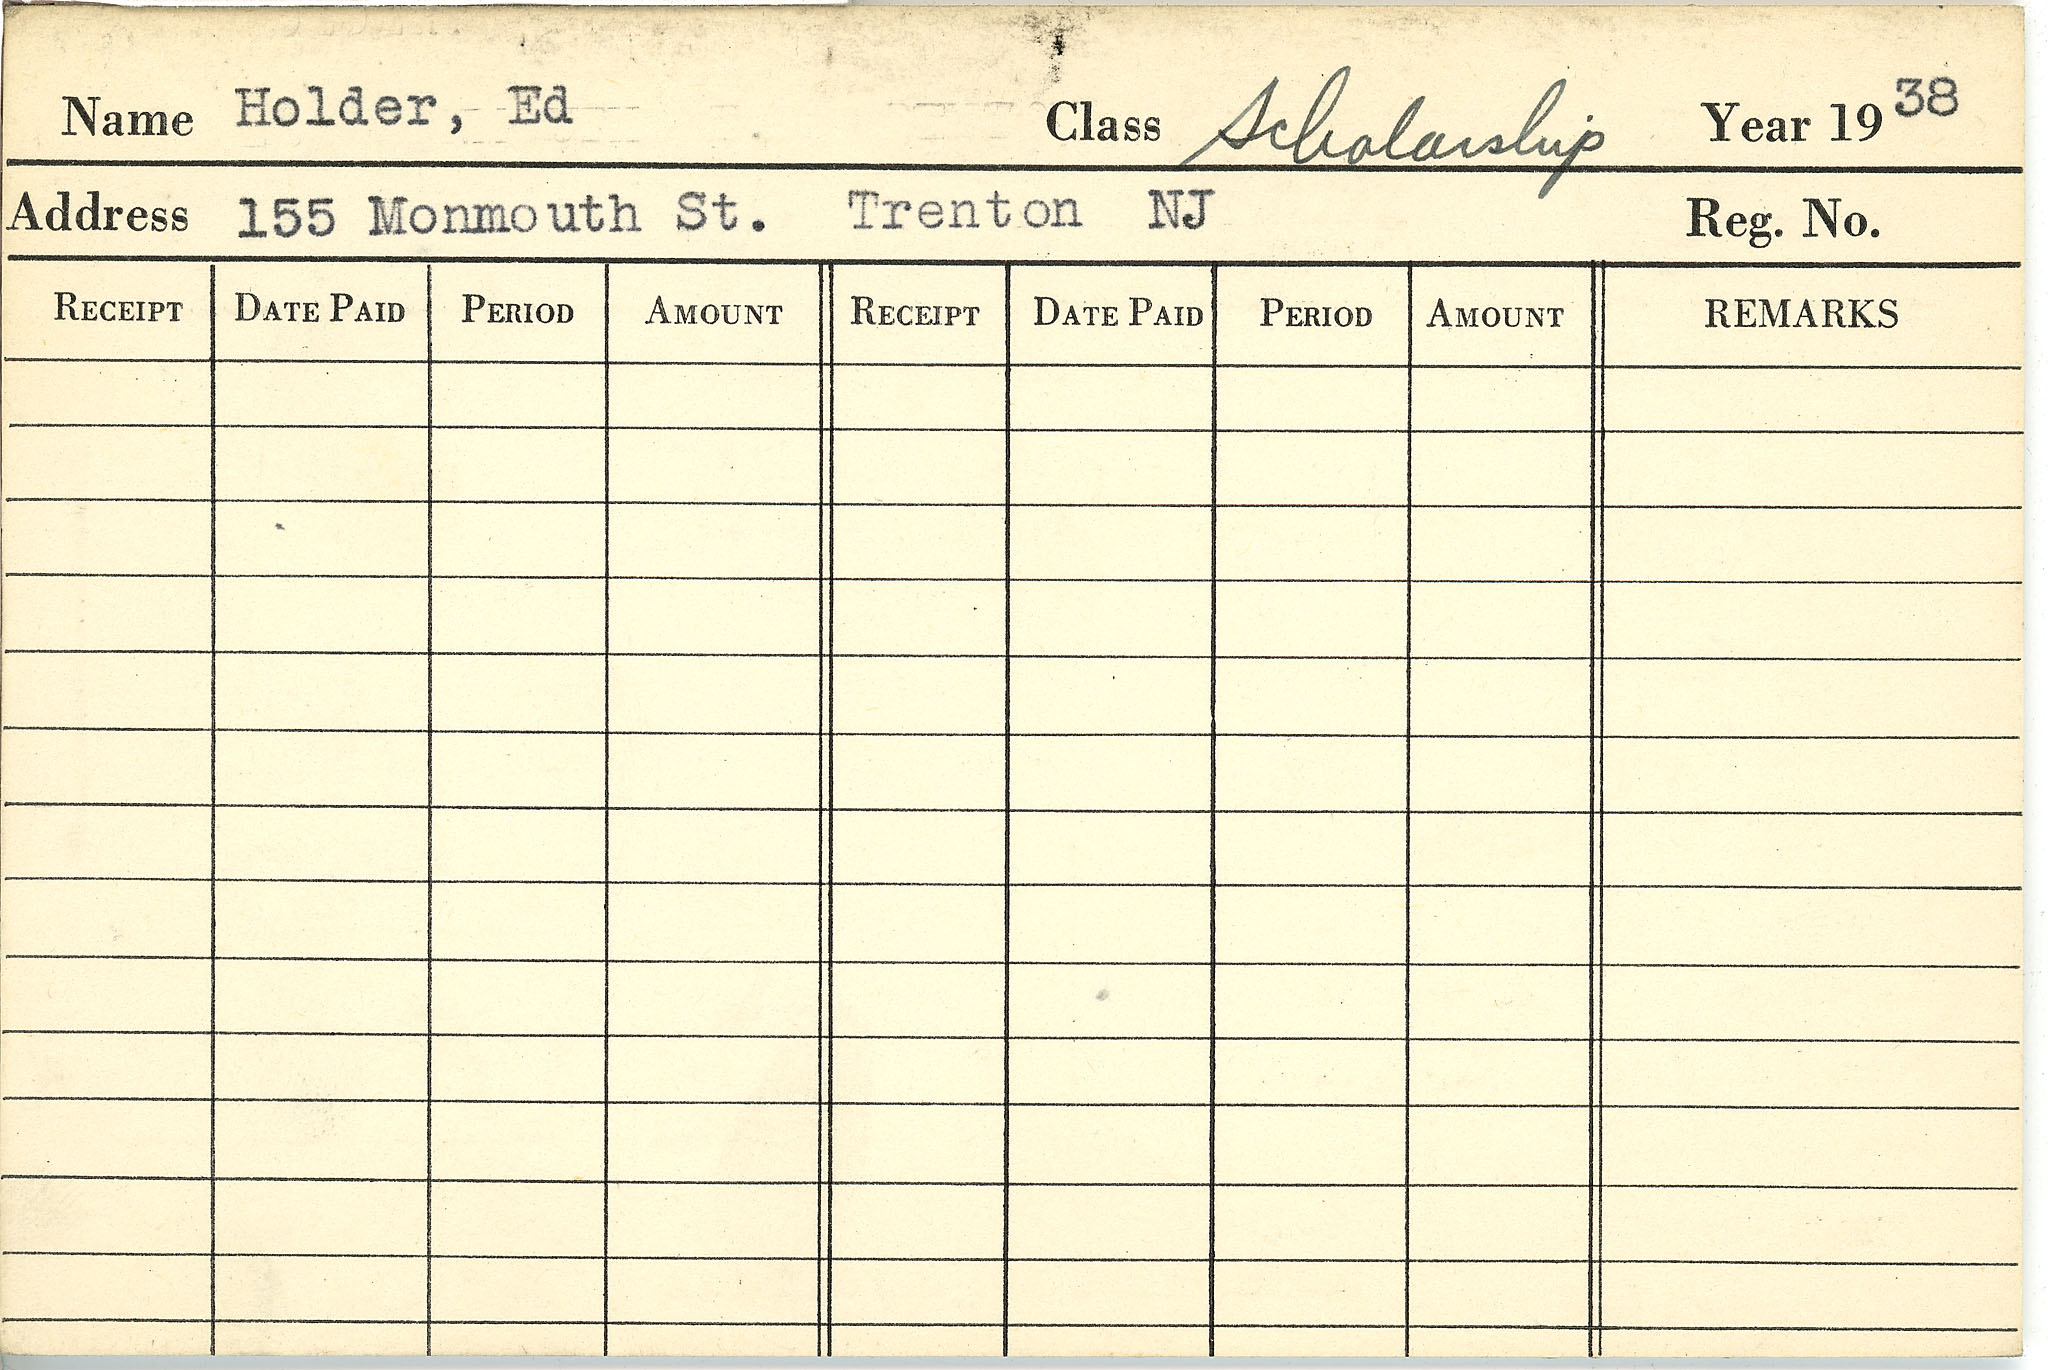 Name Holder, Ed Class Scholarship Year 1938
Address 155 Monmouth St. Trenton NJ Reg. No.
RECEIPT DATE PAID PERIOD AMOUNT RECEIPT DATE PAID PERIOD AMOUNT REMARKS